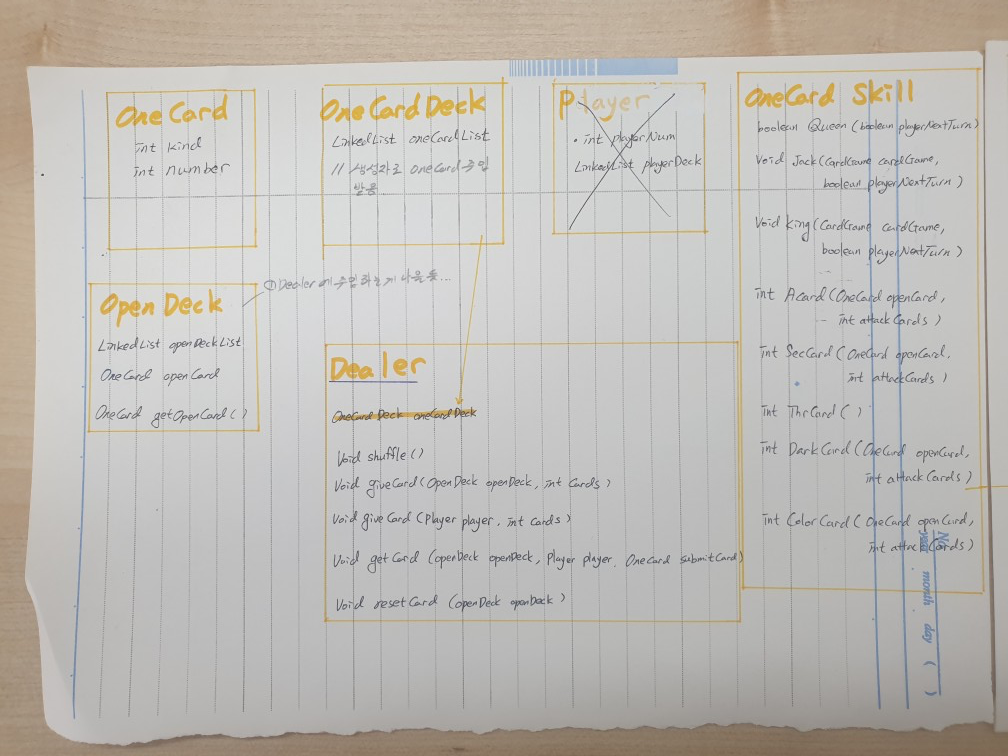 OneCard
int kind
int number
OneCardDeck
LinkedList oneCardList
// 생성자로 oneCard 주입
받음
Player
· int playerNum
LinkedList playerDeck
OneCard Skill
boolean Queen (boolean playerNextTurn)
Void Jack(CardGame cardGame,
boolean playerNextTurn)
Void King(CardGame cardGame,
boolean playerNextTurn)
int Acard(OneCard openCard,
int attackCards)
int SecCard(OneCard openCard,
int attackCards)
int ThrCard()
int DarkCard(OneCard openCard,
int attackCards)
int ColorCard(OneCard openCard,
int attackCards)
Open Deck
① Dealer에 주입하는게 나을듯...
LinkedList openDeckList
OneCard openCard
OneCard getOpenCard()
Dealer
OneCardDeck oneCardDeck
Void shuffle()
Void giveCard(OpenDeck openDeck, int cards)
Void giveCard(Player player, int cards)
Void getCard (openDeck openDeck, Player player, OneCard submitCard)
Void resetCard (openDeck openDeck)
No.
year month day ( )